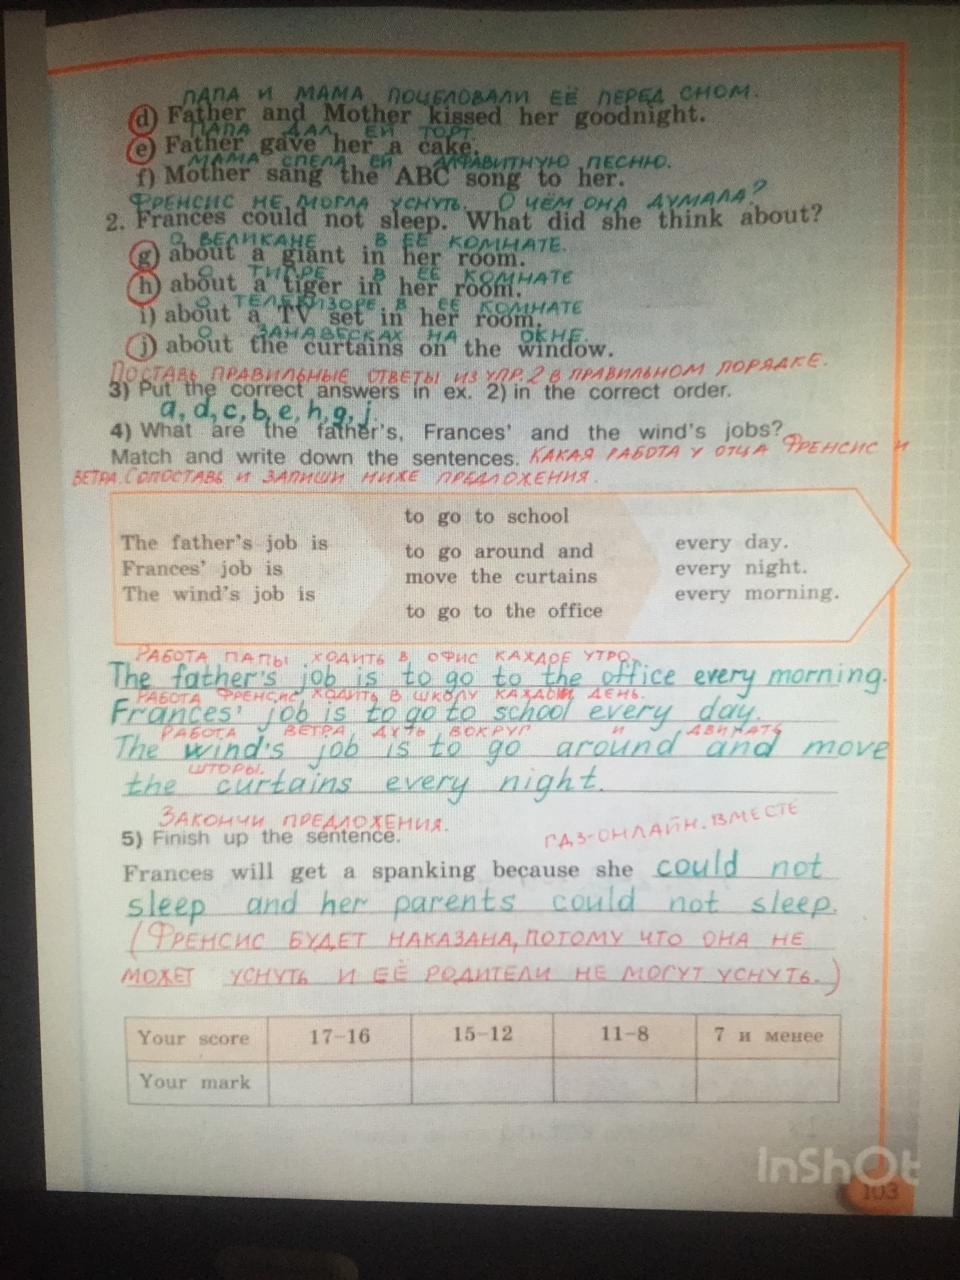 ПАПА И МАМА ПОЦЕЛОВАЛИ ЕЁ ПЕРЕД СНОМ.
d) Father and Mother kissed her goodnight.
ПАПА ДАЛ ЕЙ ТОРТ.
e) Father gave her a cake.
МАМА СПЕЛА ЕЙ АЛФАВИТНУЮ ПЕСНЮ.
f) Mother sang the ABC song to her.
ФРЕНСИС НЕ МОГЛА УСНУТЬ. О ЧЁМ ОНА ДУМАЛА?
2. Frances could not sleep. What did she think about?
О ВЕЛИКАНЕ В ЕЁ КОМНАТЕ.
g) about a giant in her room.
О ТИГРЕ В ЕЁ КОМНАТЕ
h) about a tiger in her room.
О ТЕЛЕВИЗОРЕ В ЕЁ КОМНАТЕ
i) about a TV set in her room.
О ЗАНАВЕСКАХ НА ОКНЕ.
j) about the curtains on the window.
ПОСТАВЬ ПРАВИЛЬНЫЕ ОТВЕТЫ ИЗ УПР. 2 В ПРАВИЛЬНОМ ПОРЯДКЕ.
3) Put the correct answers in ex. 2) in the correct order.
a, d, c, b, e, h, g, j.
4) What are the father's, Frances' and the wind's jobs?
Match and write down the sentences. КАКАЯ РАБОТА У ОТЦА ФРЕНСИС И
ВЕТРА. СОПОСТАВЬ И ЗАПИШИ НИЖЕ ПРЕДЛОЖЕНИЯ.
The father's job is
Frances' job is
The wind's job is
to go to school
to go around and
move the curtains
to go to the office
every day.
every night.
every morning.
РАБОТА ПАПЫ ХОДИТЬ В ОФИС КАЖДОЕ УТРО.
The father's job is to go to the office every morning.
РАБОТА ФРЕНСИС ХОДИТЬ В ШКОЛУ КАЖДЫЙ ДЕНЬ.
Frances' job is to go to school every day.
РАБОТА ВЕТРА ДУТЬ ВОКРУГ И ДВИГАТЬ
The wind's job is to go around and move
ШТОРЫ.
the curtains every night.
ЗАКОНЧИ ПРЕДЛОЖЕНИЯ.
5) Finish up the sentence.
ГДЗ-ОНЛАЙН. ВМЕСТЕ
Frances will get a spanking because she could not
sleep and her parents could not sleep.
(ФРЕНСИС БУДЕТ НАКАЗАНА, ПОТОМУ ЧТО ОНА НЕ
МОЖЕТ УСНУТЬ И ЕЁ РОДИТЕЛИ НЕ МОГУТ УСНУТЬ.)
Your score 17–16 15–12 11–8 7 и менее
Your mark
InShOt
103